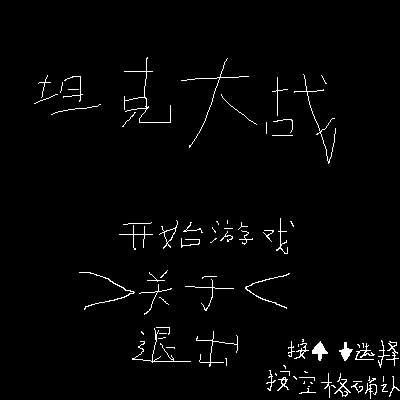 坦克大战
开始游戏
>关于<
退出
按↑↓选择
按空格确认